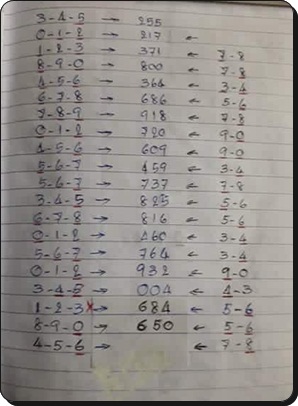 3-4-5 → 255
0-1-2 → 217 ←
1-2-3 → 371 ← 7-8
8-9-0 → 800 ← 7-8
4-5-6 → 364 ← 3-4
6-7-8 → 686 ← 5-6
7-8-9 → 918 ← 7-8
0-1-2 → 720 ← 9-0
4-5-6 → 609 ← 9-0
5-6-7 → 459 ← 3-4
5-6-7 → 737 ← 7-8
3-4-5 → 825 ← 5-6
6-7-8 → 816 ← 5-6
0-1-2 → 460 ← 3-4
5-6-7 → 764 ← 3-4
0-1-2 → 932 ← 9-0
3-4-5 → 004 ← 4-3
1-2-3 × → 684 ← 5-6
8-9-0 → 650 ← 5-6
4-5-6 → ← 7-8